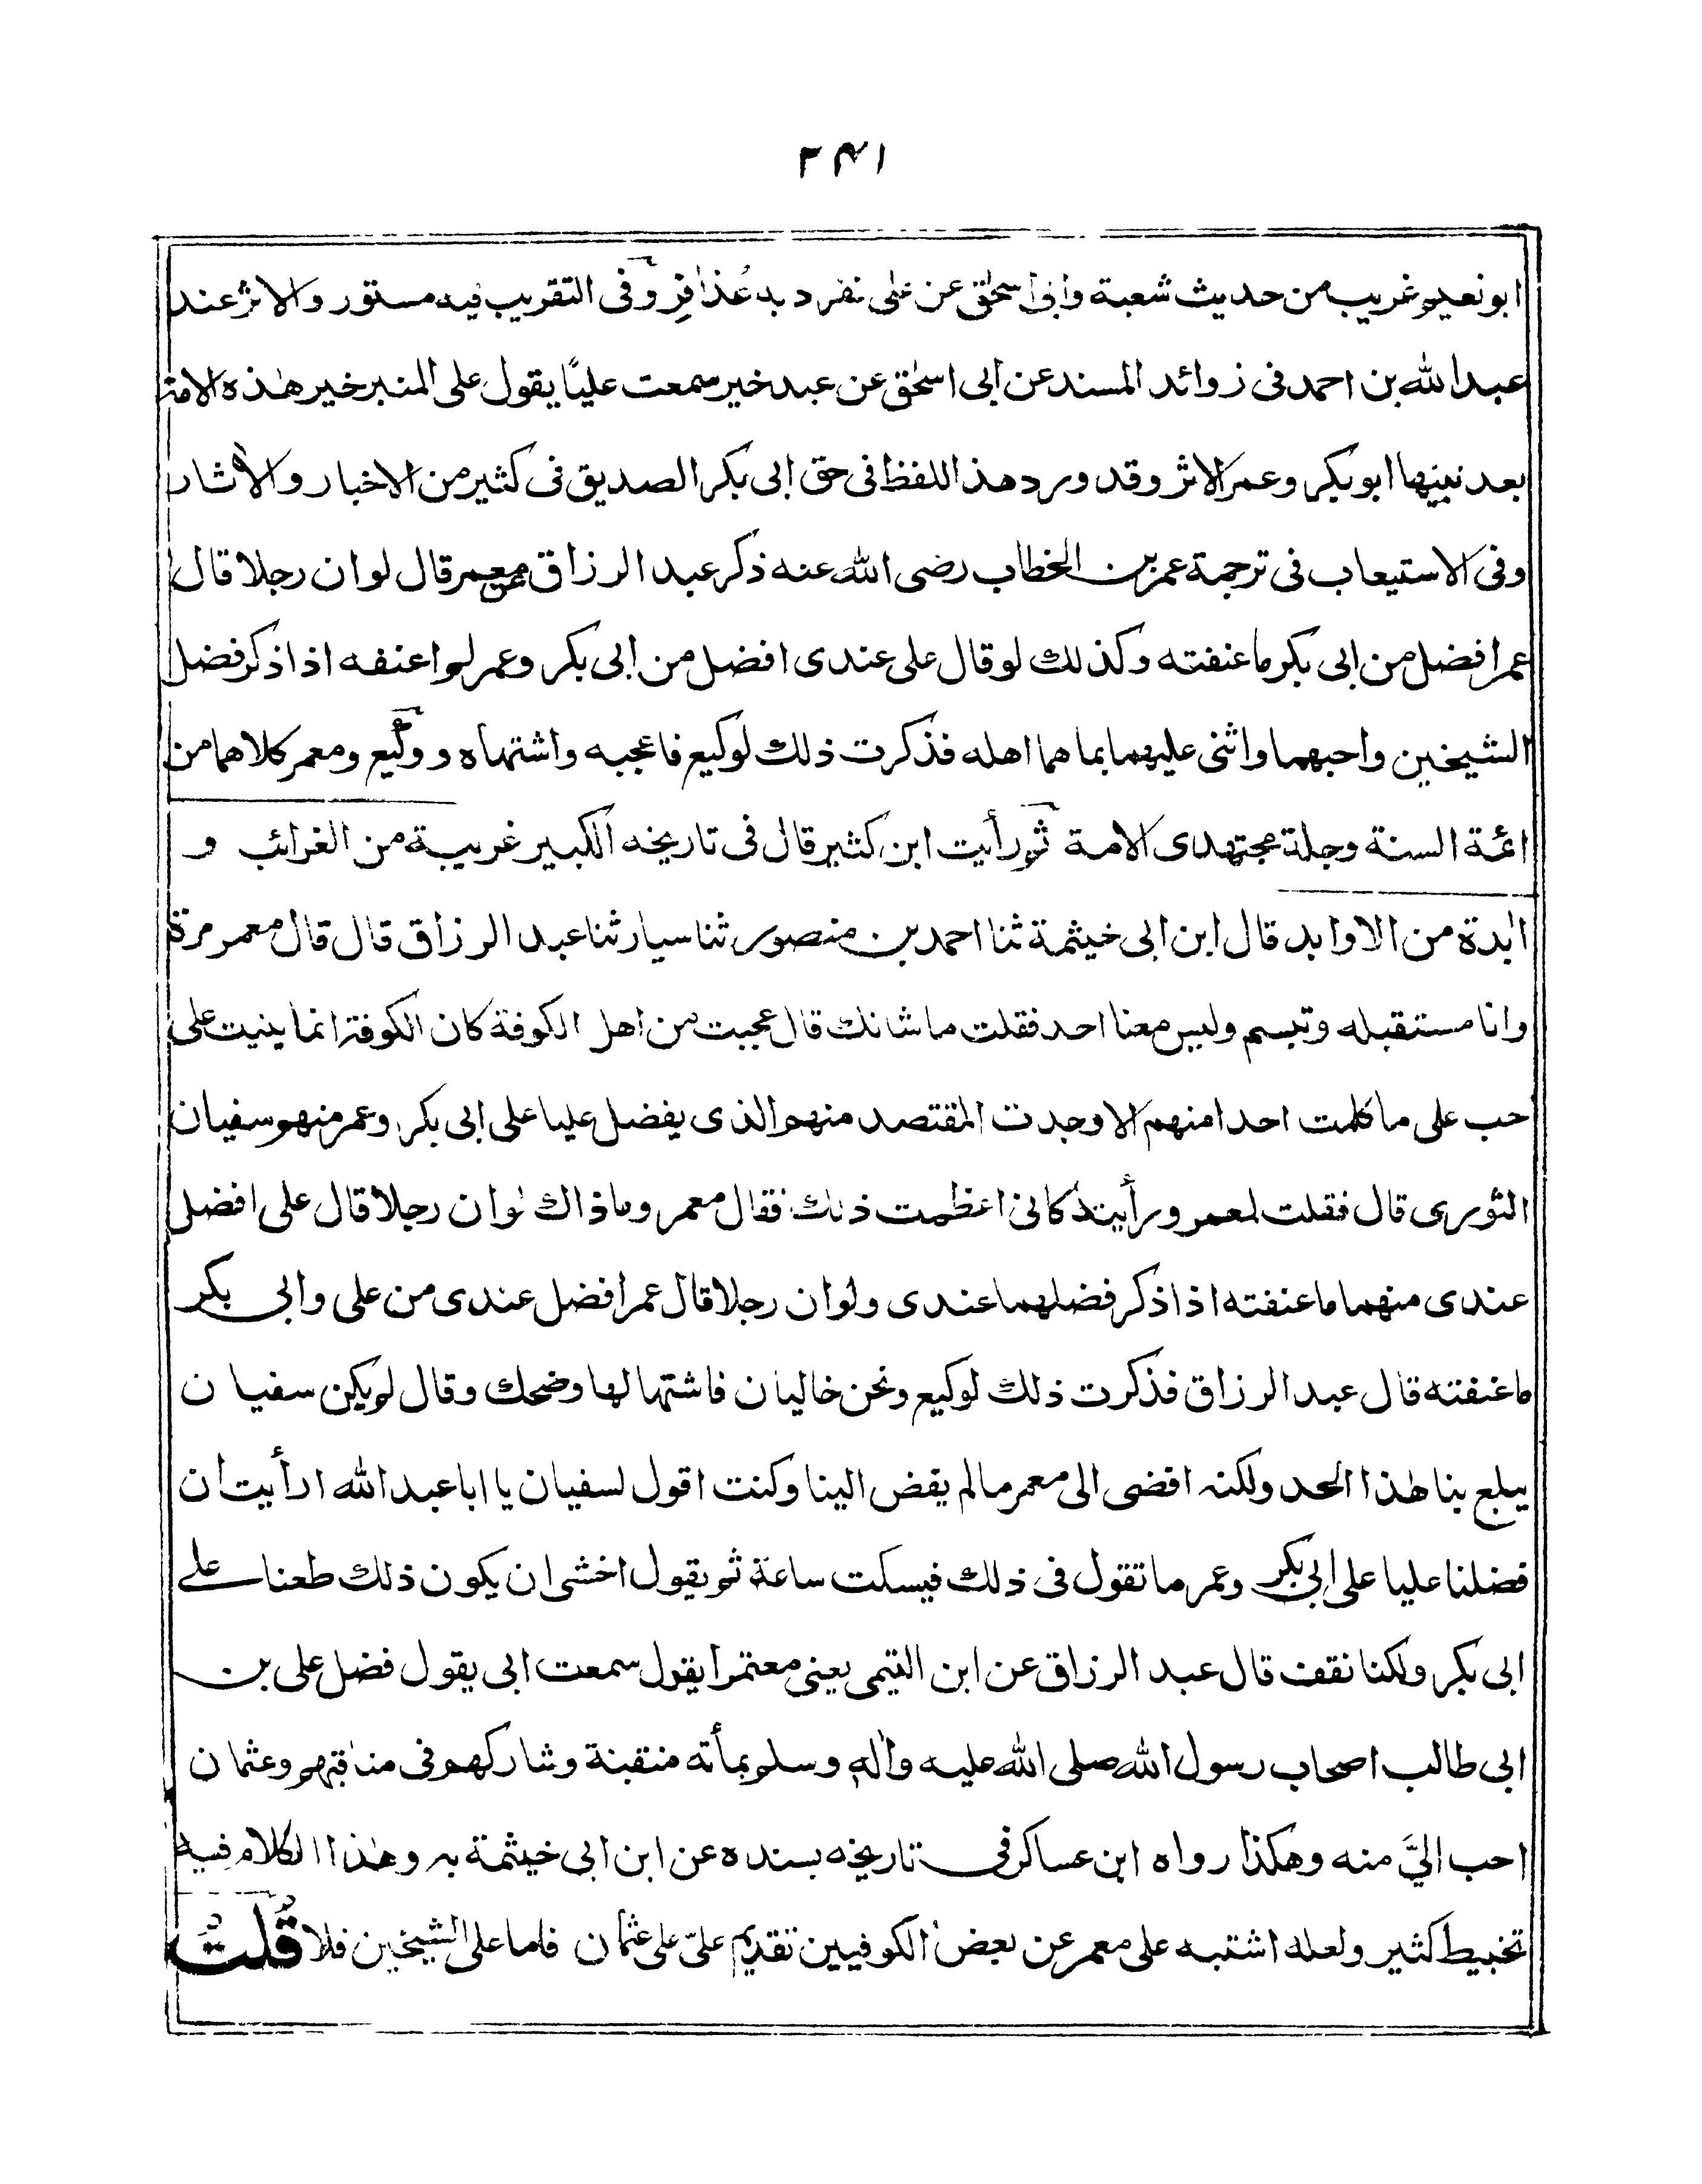 ٢٤١
ابو نعيم غريب من حديث شعبة وابى اسحٰق عن على نفرد به عُذافِر وفى التقريب فيه مستور والاثر عند
عبد الله بن احمد فى زوائد المسند عن ابى اسحٰق عن عبد خير سمعت عليًا يقول على المنبر خير هٰذه الامة
بعد نبيها ابو بكر وعمر الاثر وقد ورد هذ اللفظ فى حق ابى بكر الصديق فى كثير من الاخبار والأثار
وفى الاستيعاب فى ترجمة عمر بن الخطاب رضى الله عنه ذكر عبد الرزاق معمر قال لو ان رجلا قال
عمر افضل من ابى بكر ما عنفته وكذلك لو قال على عندى افضل من ابى بكر وعمر لم اعنفه اذا ذكر فضل
الشيخين واحبهما واثنى عليهما بما هما اهله فذكرت ذلك لوكيع فاعجبه واشتهاه و وكيع ومعمر كلاهما من
ائمة السنة وجلة مجتهدى الامة ثم رأيت ابن كثير قال فى تاريخه الكبير غريبة من الغرائب و
اٰبدة من الاوابد قال ابن ابى خيثمة ثنا احمد بن منصور ثنا سيار ثنا عبد الرزاق قال قال معمر مرة
وانا مستقبله وتبسم وليس معنا احد فقلت ما شانك قال عجبت من اهل الكوفة كان الكوفة انما بنيت على
حب على ما كلمت احدا منهم الا وجدت المقتصد منهم الذى يفضل عليا على ابى بكر وعمر منهم سفيان
الثورى قال فقلت لمعمر ورأيته كانى اعظمت ذلك فقال معمر وما ذاك لو ان رجلا قال على افضل
عندى منهما ما عنفته اذا ذكر فضلهما عندى ولو ان رجلا قال عمر افضل عندى من على وابى بكر
ما عنفته قال عبد الرزاق فذكرت ذلك لوكيع ونحن خاليان فاشتهالها وضحك وقال لم يكن سفيان
يبلع بنا هٰذا الحد ولكنه افضى الى معمر ما لم يفض الينا وكنت اقول لسفيان يا ابا عبد الله ارأيت ان
فضلنا عليا على ابى بكر وعمر ما تقول فى ذلك فيسكت ساعة ثم يقول اخشى ان يكون ذلك طعنا على
ابى بكر ولكنا نقف قال عبد الرزاق عن ابن التيمى يعنى معتمرا يقول سمعت ابى يقول فضل على بن
ابى طالب اصحاب رسول الله صلى الله عليه واٰله وسلم بمأته منقبة وشاركهم فى مناقبهم وعثمان
احب اليَّ منه وهكذا رواه ابن عساكر فى تاريخه بسنده عن ابن ابى خيثمة به وهٰذا الكلام فيه
تخبيط كثير ولعله اشتبه على معمر عن بعض الكوفيين تقديم علىّ على عثمان فاما على الشيخين فلا قُلتُ